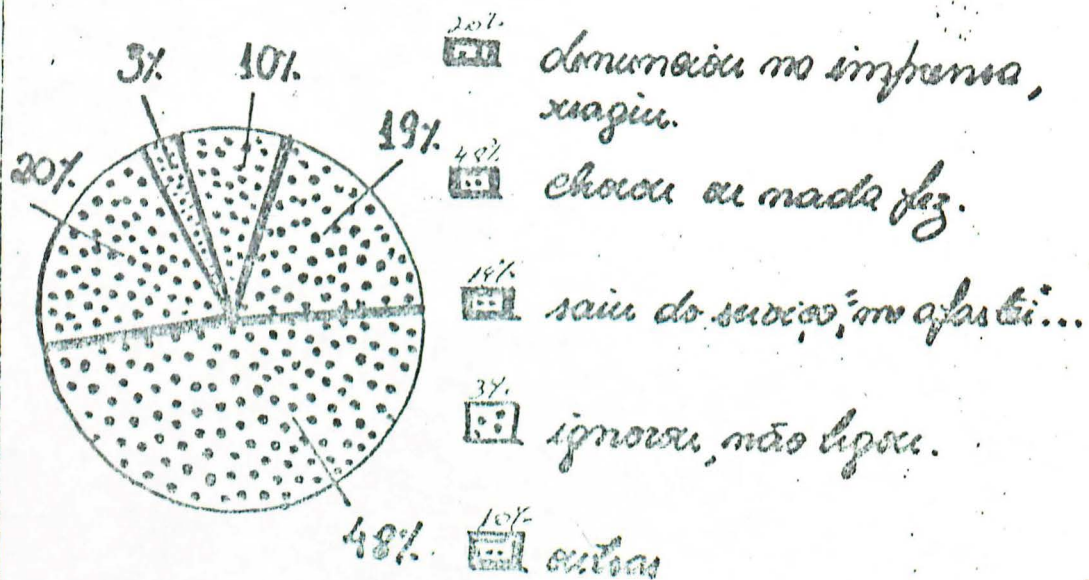 3% 10%
19%
20%
48%
20%
denunciou na imprensa,
reagiu.
48%
chorou ou nada fez.
19%
saiu do serviço, "me afastei"...
3%
ignorou, não ligou.
10%
outros